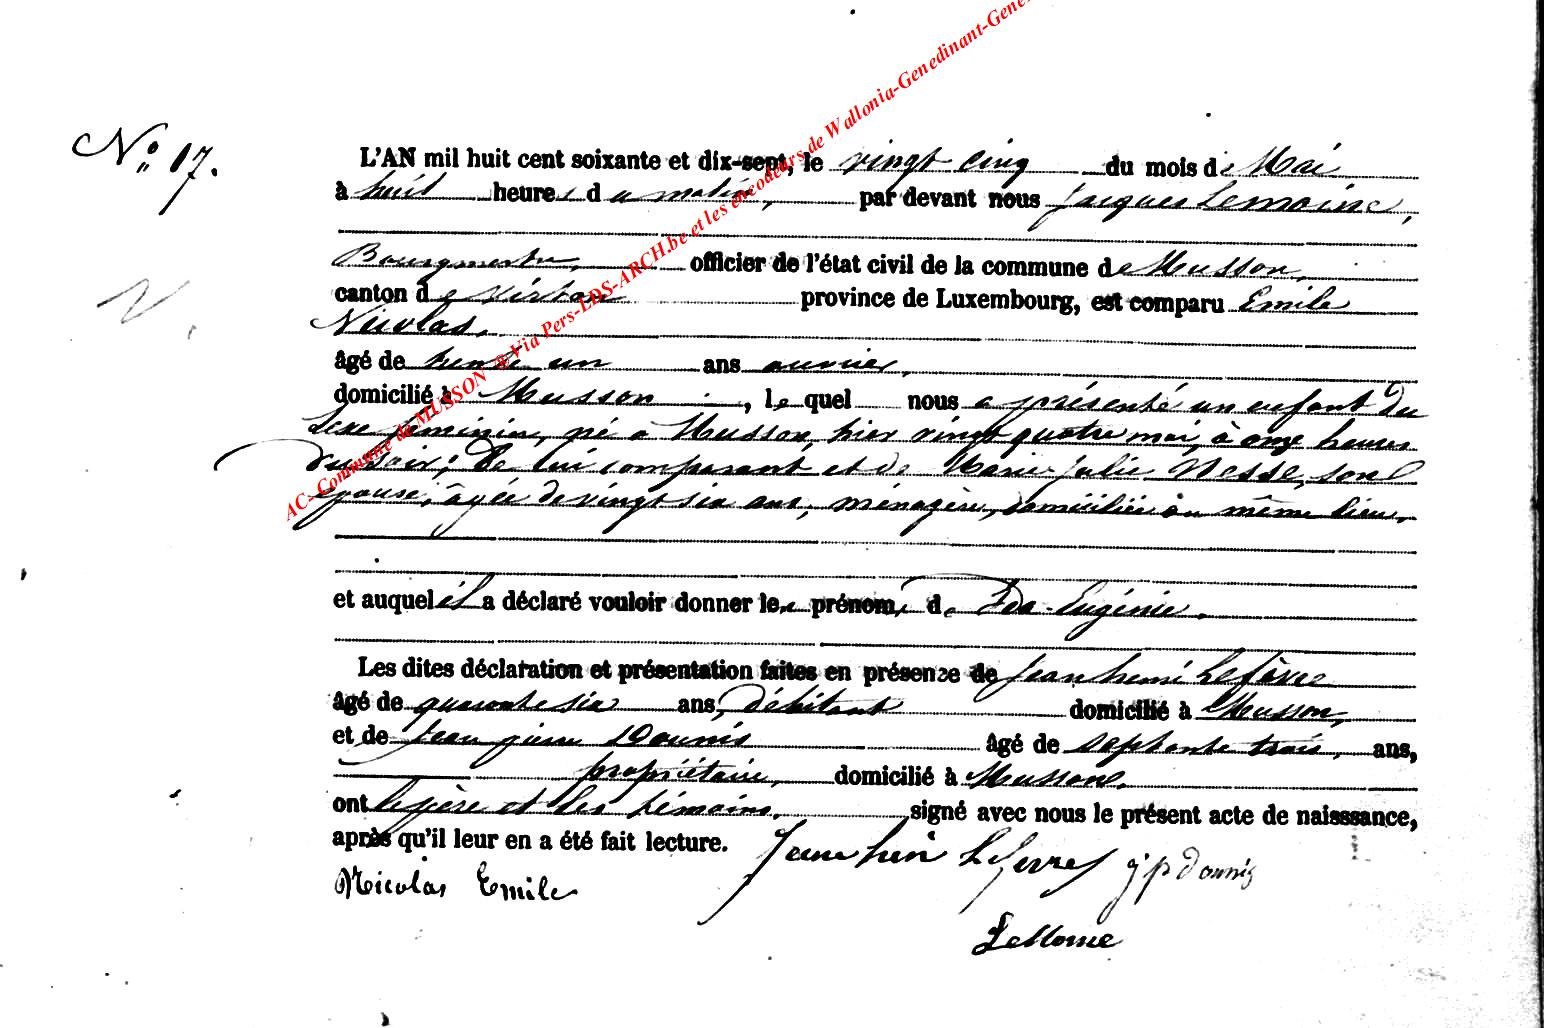 N° 17.
L'AN mil huit cent soixante et dix-sept, le vingt cinq du mois de Mai
à huit heures du matin, par devant nous Jacques Lemoine,
Bourgmestre, officier de l'état civil de la commune de Musson,
canton de Virton province de Luxembourg, est comparu Emile
Nicolas,
âgé de trente un ans ouvrier,
domicilié à Musson, lequel nous a présenté un enfant du
sexe féminin, né à Musson, hier vingt quatre mai, à onze heures
du soir; de lui comparant et de Marie Julie Nesse, son
épouse, âgée de vingt six ans, ménagère, domiciliée au même lieu.
et auquel il a déclaré vouloir donner les prénoms d Ida Eugénie.
Les dites déclaration et présentation faites en présence de Jean henri Lefèvre
âgé de quarante six ans, débitant domicilié à Musson,
et de Jean pierre Dounis âgé de septante trois, ans,
propriétaire, domicilié à Musson.
ont le père et les témoins, signé avec nous le présent acte de naisssance,
après qu'il leur en a été fait lecture.
Jean henri Lefevre j p dounis
Nicolas Emile
Lemoine
AC- Commune de MUSSON @ Via Pers-LDS-ARCH.be et les encodeurs de Wallonia-Genedinant-Gene